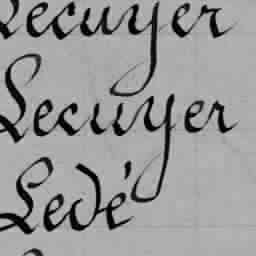 Lecuyer
Lecuyer
Levé